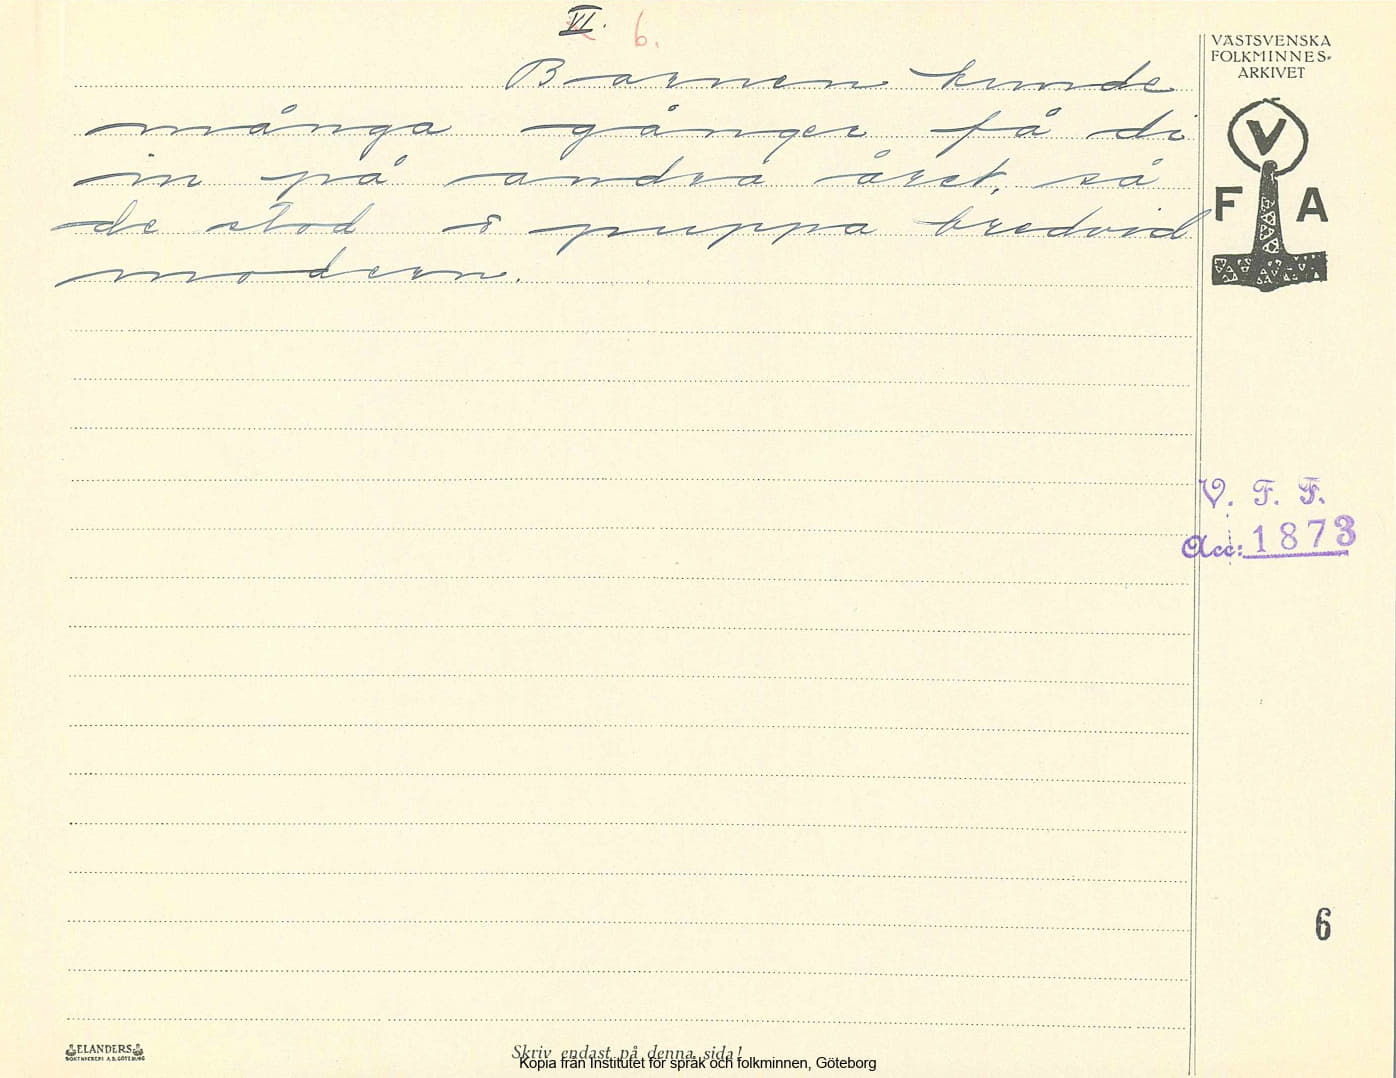 VI. 6.
VÄSTSVENSKA
FOLKMINNES-
ARKIVET
V
F A
Barnen kunde
många gånger få di
in på andra året, så
de stod i puppa bredvid
modern.
V. F. F.
Acc: 1873
6
ELANDERS
BOKTRYCKERI A.B. GÖTEBORG
Skriv endast på denna sida!
Kopia från Institutet för språk och folkminnen, Göteborg